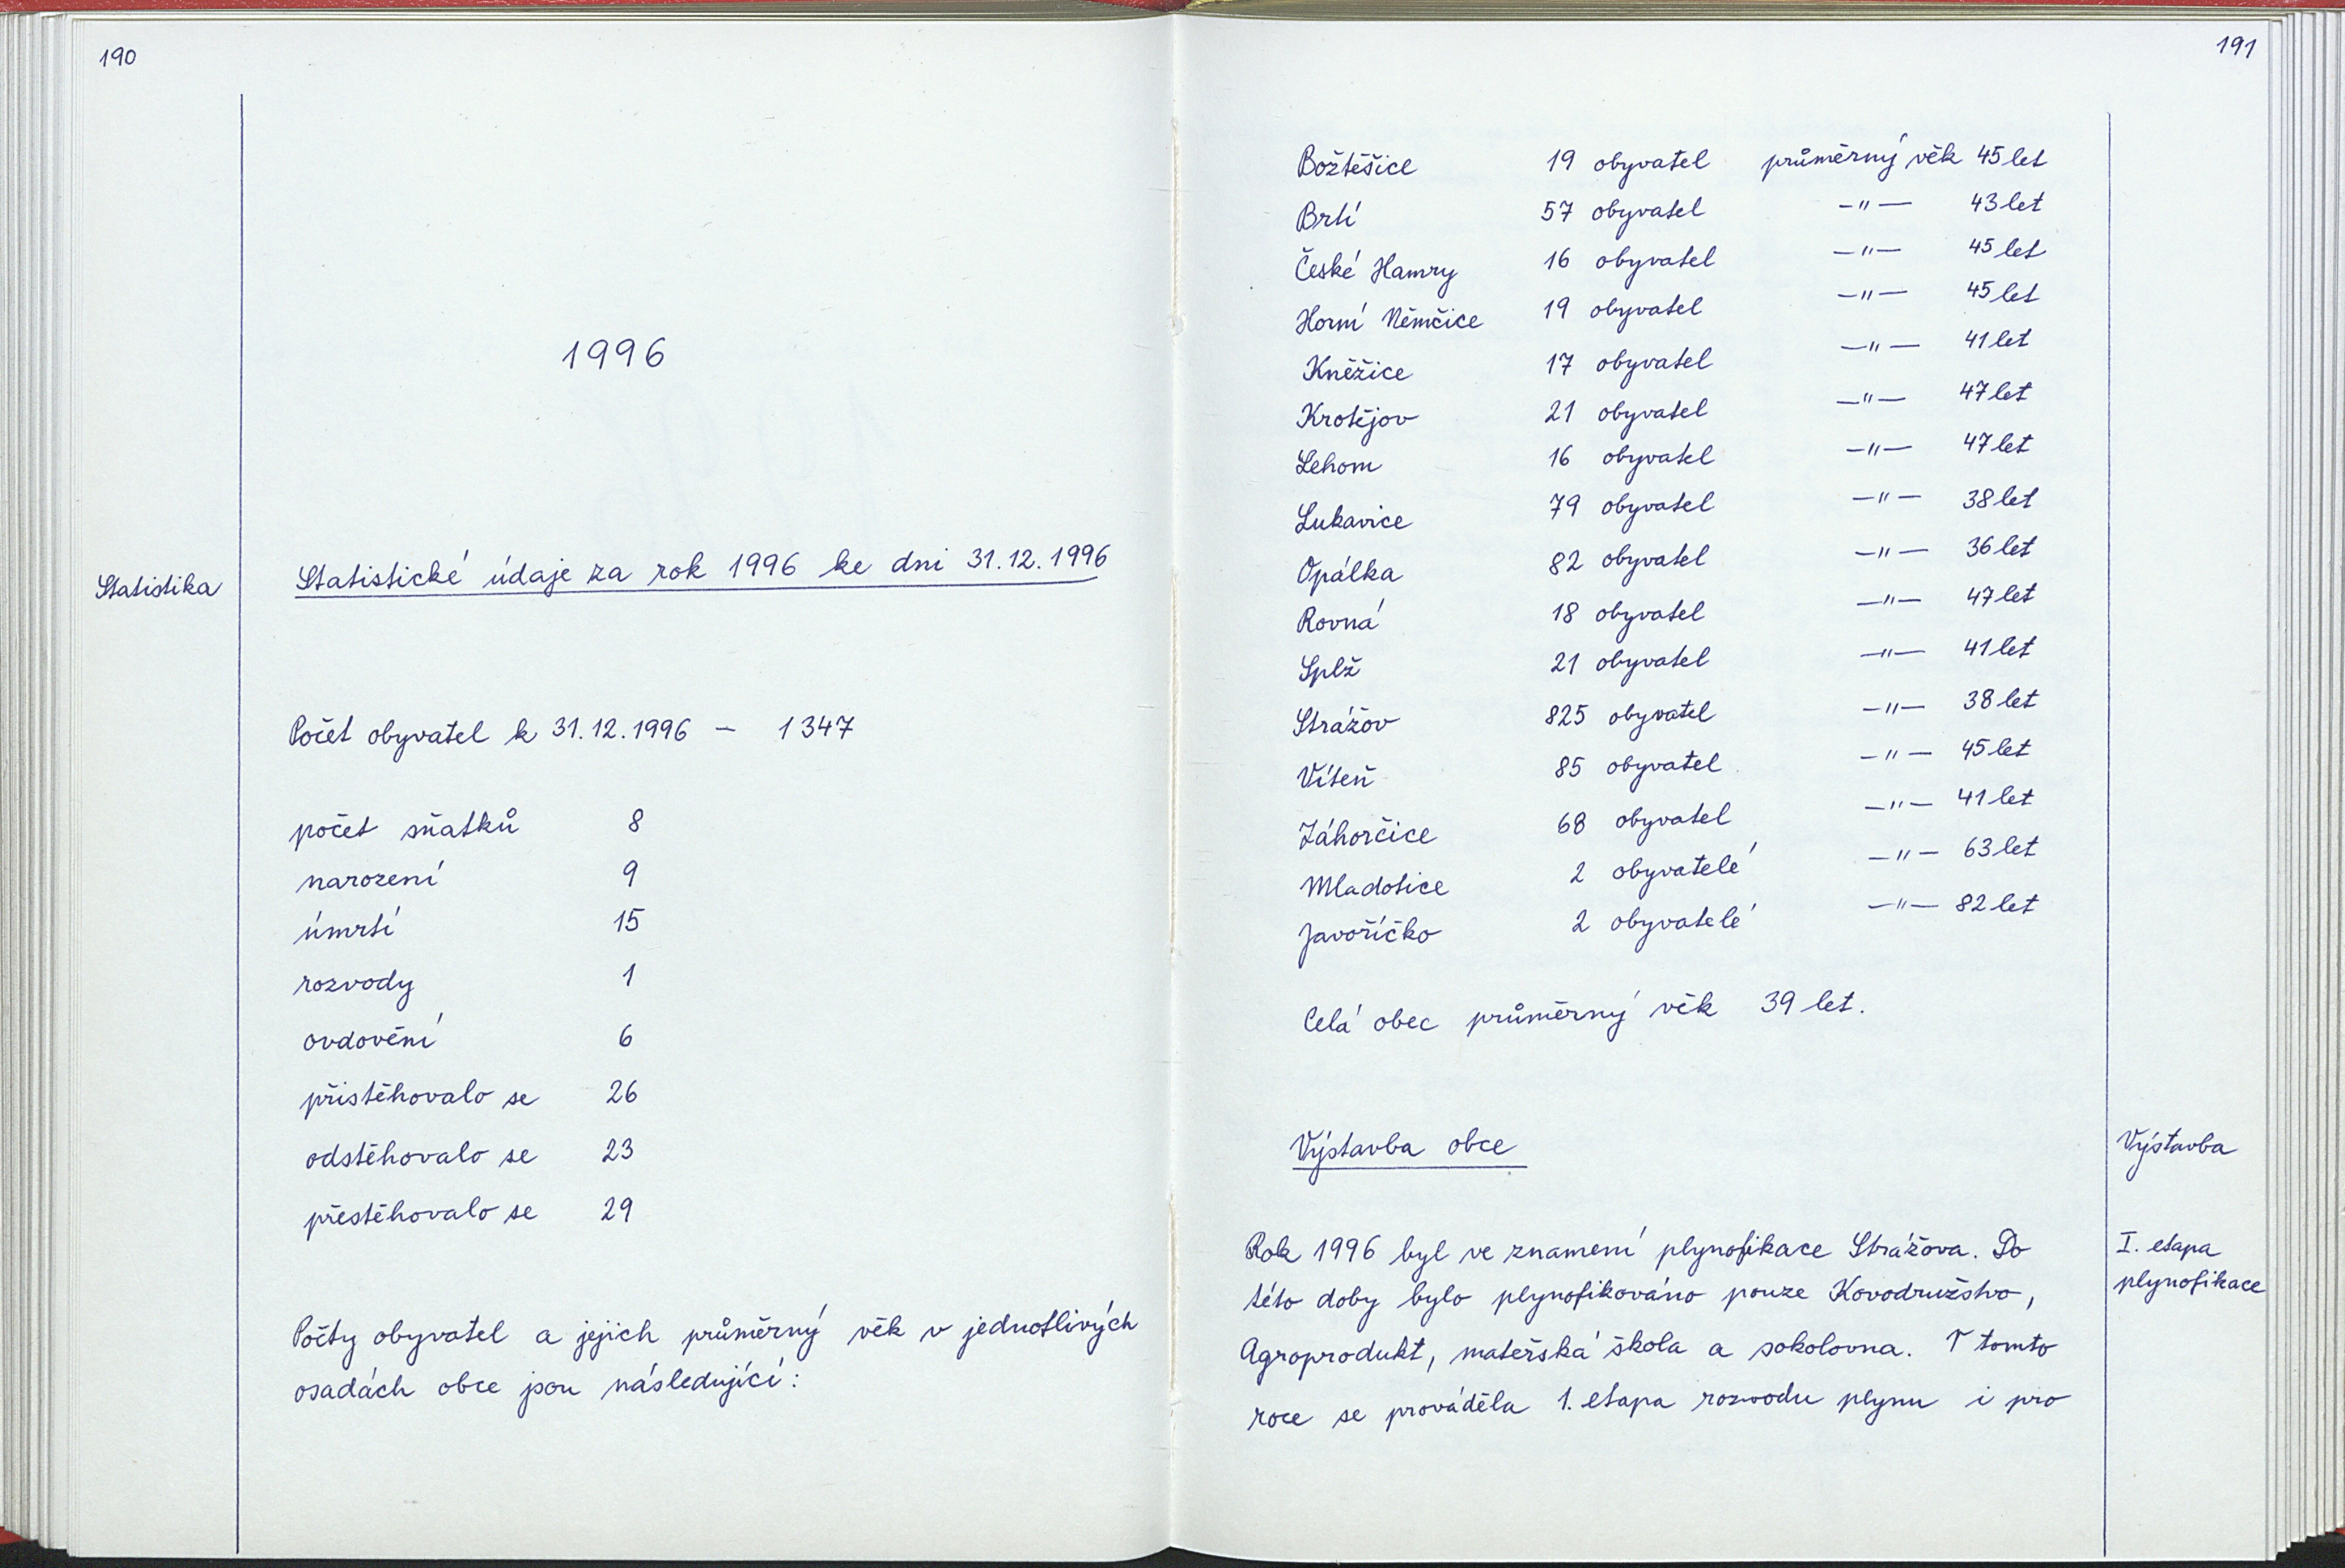 190
1996
Statistika
Statistické údaje za rok 1996 ke dni 31.12.1996
Počet obyvatel k 31.12.1996 – 1347
počet sňatků 8
narození 9
úmrtí 15
rozvody 1
ovdovění 6
přistěhovalo se 26
odstěhovalo se 23
přestěhovalo se 29
Počty obyvatel a jejich průměrný věk v jednotlivých
osadách obce jsou následující:
191
Božtěšice 19 obyvatel průměrný věk 45 let
Brtí 57 obyvatel –"– 43 let
České Hamry 16 obyvatel –"– 45 let
Horní Němčice 19 obyvatel –"– 45 let
Kněžice 17 obyvatel –"– 41 let
Krotějov 21 obyvatel –"– 47 let
Lehom 16 obyvatel –"– 47 let
Lukavice 79 obyvatel –"– 38 let
Opálka 82 obyvatel –"– 36 let
Rovná 18 obyvatel –"– 47 let
Splž 21 obyvatel –"– 41 let
Strážov 825 obyvatel –"– 38 let
Víteň 85 obyvatel –"– 45 let
Záhorčice 68 obyvatel –"– 41 let
Mladotice 2 obyvatelé –"– 63 let
Javoříčko 2 obyvatelé –"– 82 let
Celá obec průměrný věk 39 let.
Výstavba obce
Výstavba
Rok 1996 byl ve znamení plynofikace Strážova. Do
této doby bylo plynofikováno pouze Kovodružstvo,
Agroprodukt, mateřská škola a sokolovna. V tomto
roce se prováděla 1. etapa rozvodu plynu i pro
I. etapa
plynofikace